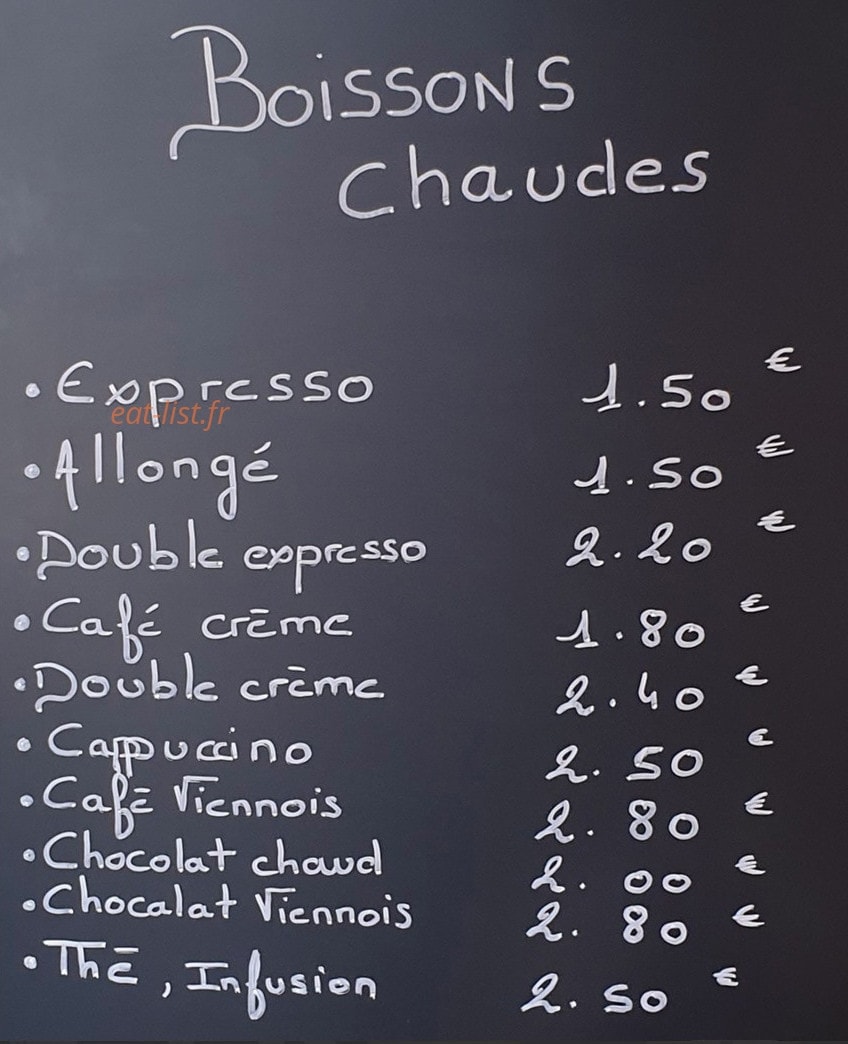 Boissons
Chaudes
• Expresso 1.50 €
eat-list.fr
• Allongé 1.50 €
• Double expresso 2.20 €
• Café crème 1.80 €
• Double crème 2.40 €
• Cappuccino 2.50 €
• Café Viennois 2.80 €
• Chocolat chaud 2.00 €
• Chocalat Viennois 2.80 €
• Thé, Infusion 2.50 €